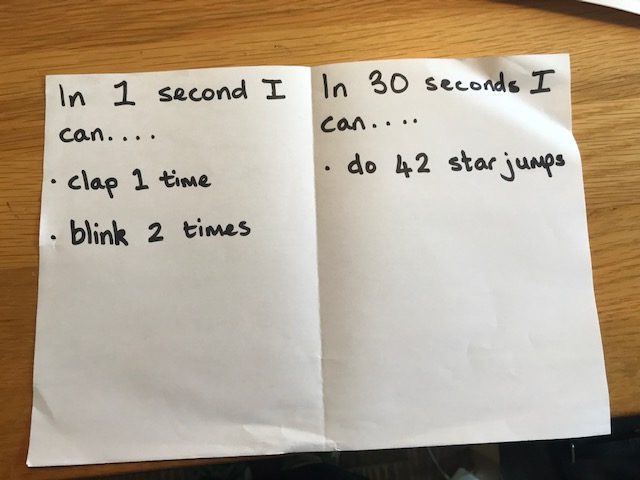 In 1 second I
can....
· clap 1 time
· blink 2 times
In 30 seconds I
can....
· do 42 star jumps